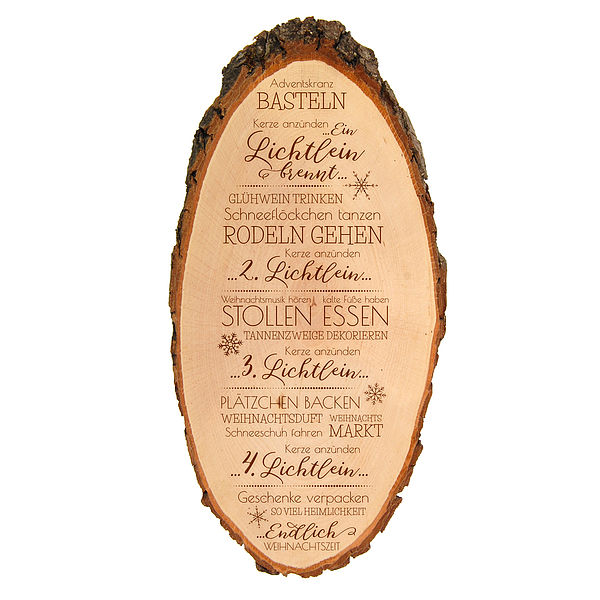 Adventskranz
BASTELN
Kerze anzünden
...Ein
Lichtlein
brennt...
GLÜHWEIN TRINKEN
Schneeflöckchen tanzen
RODELN GEHEN
Kerze anzünden
...2. Lichtlein...
Weihnachtsmusik hören kalte Füße haben
STOLLEN ESSEN
TANNENZWEIGE DEKORIEREN
Kerze anzünden
...3. Lichtlein...
PLÄTZCHEN BACKEN
WEIHNACHTSDUFT WEIHNACHTS
Schneeschuh fahren MARKT
Kerze anzünden
...4. Lichtlein...
Geschenke verpacken
SO VIEL HEIMLICHKEIT
...Endlich
WEIHNACHTSZEIT